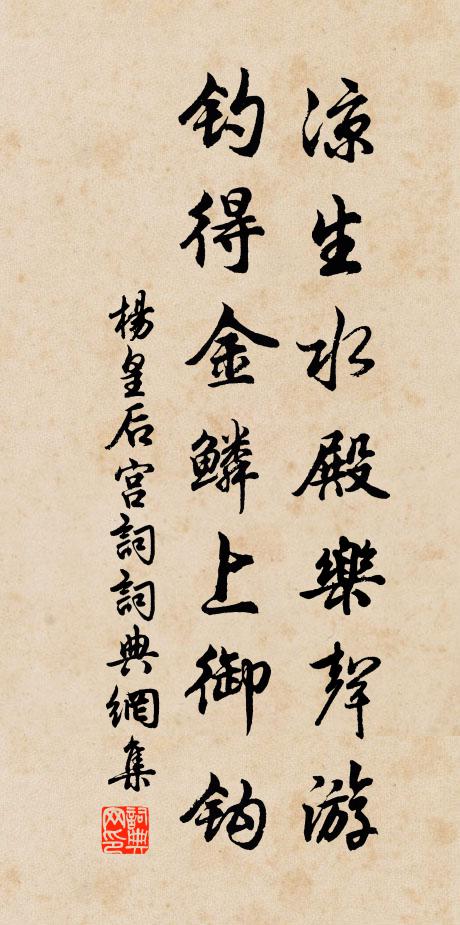 凉生水殿樂聲游
钓得金鳞上御钩
楊皇后宫詞詞典網集
詞典网印